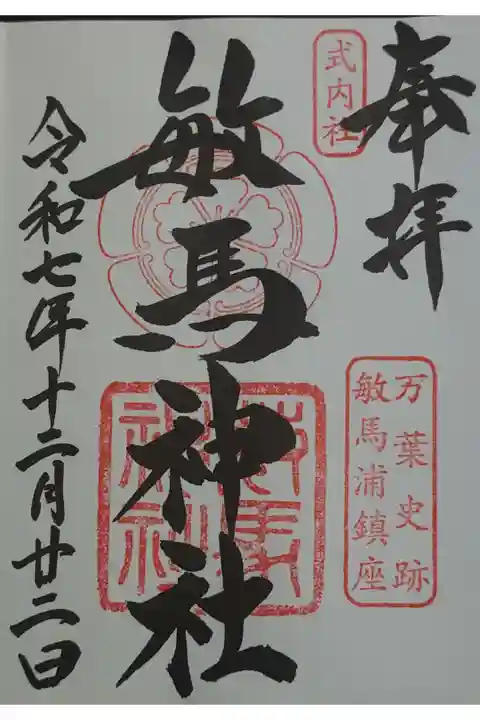 奉拝
式内社
万葉史跡
敏馬浦鎮座
敏馬神社
敏馬神社
令和七年十二月廿二日